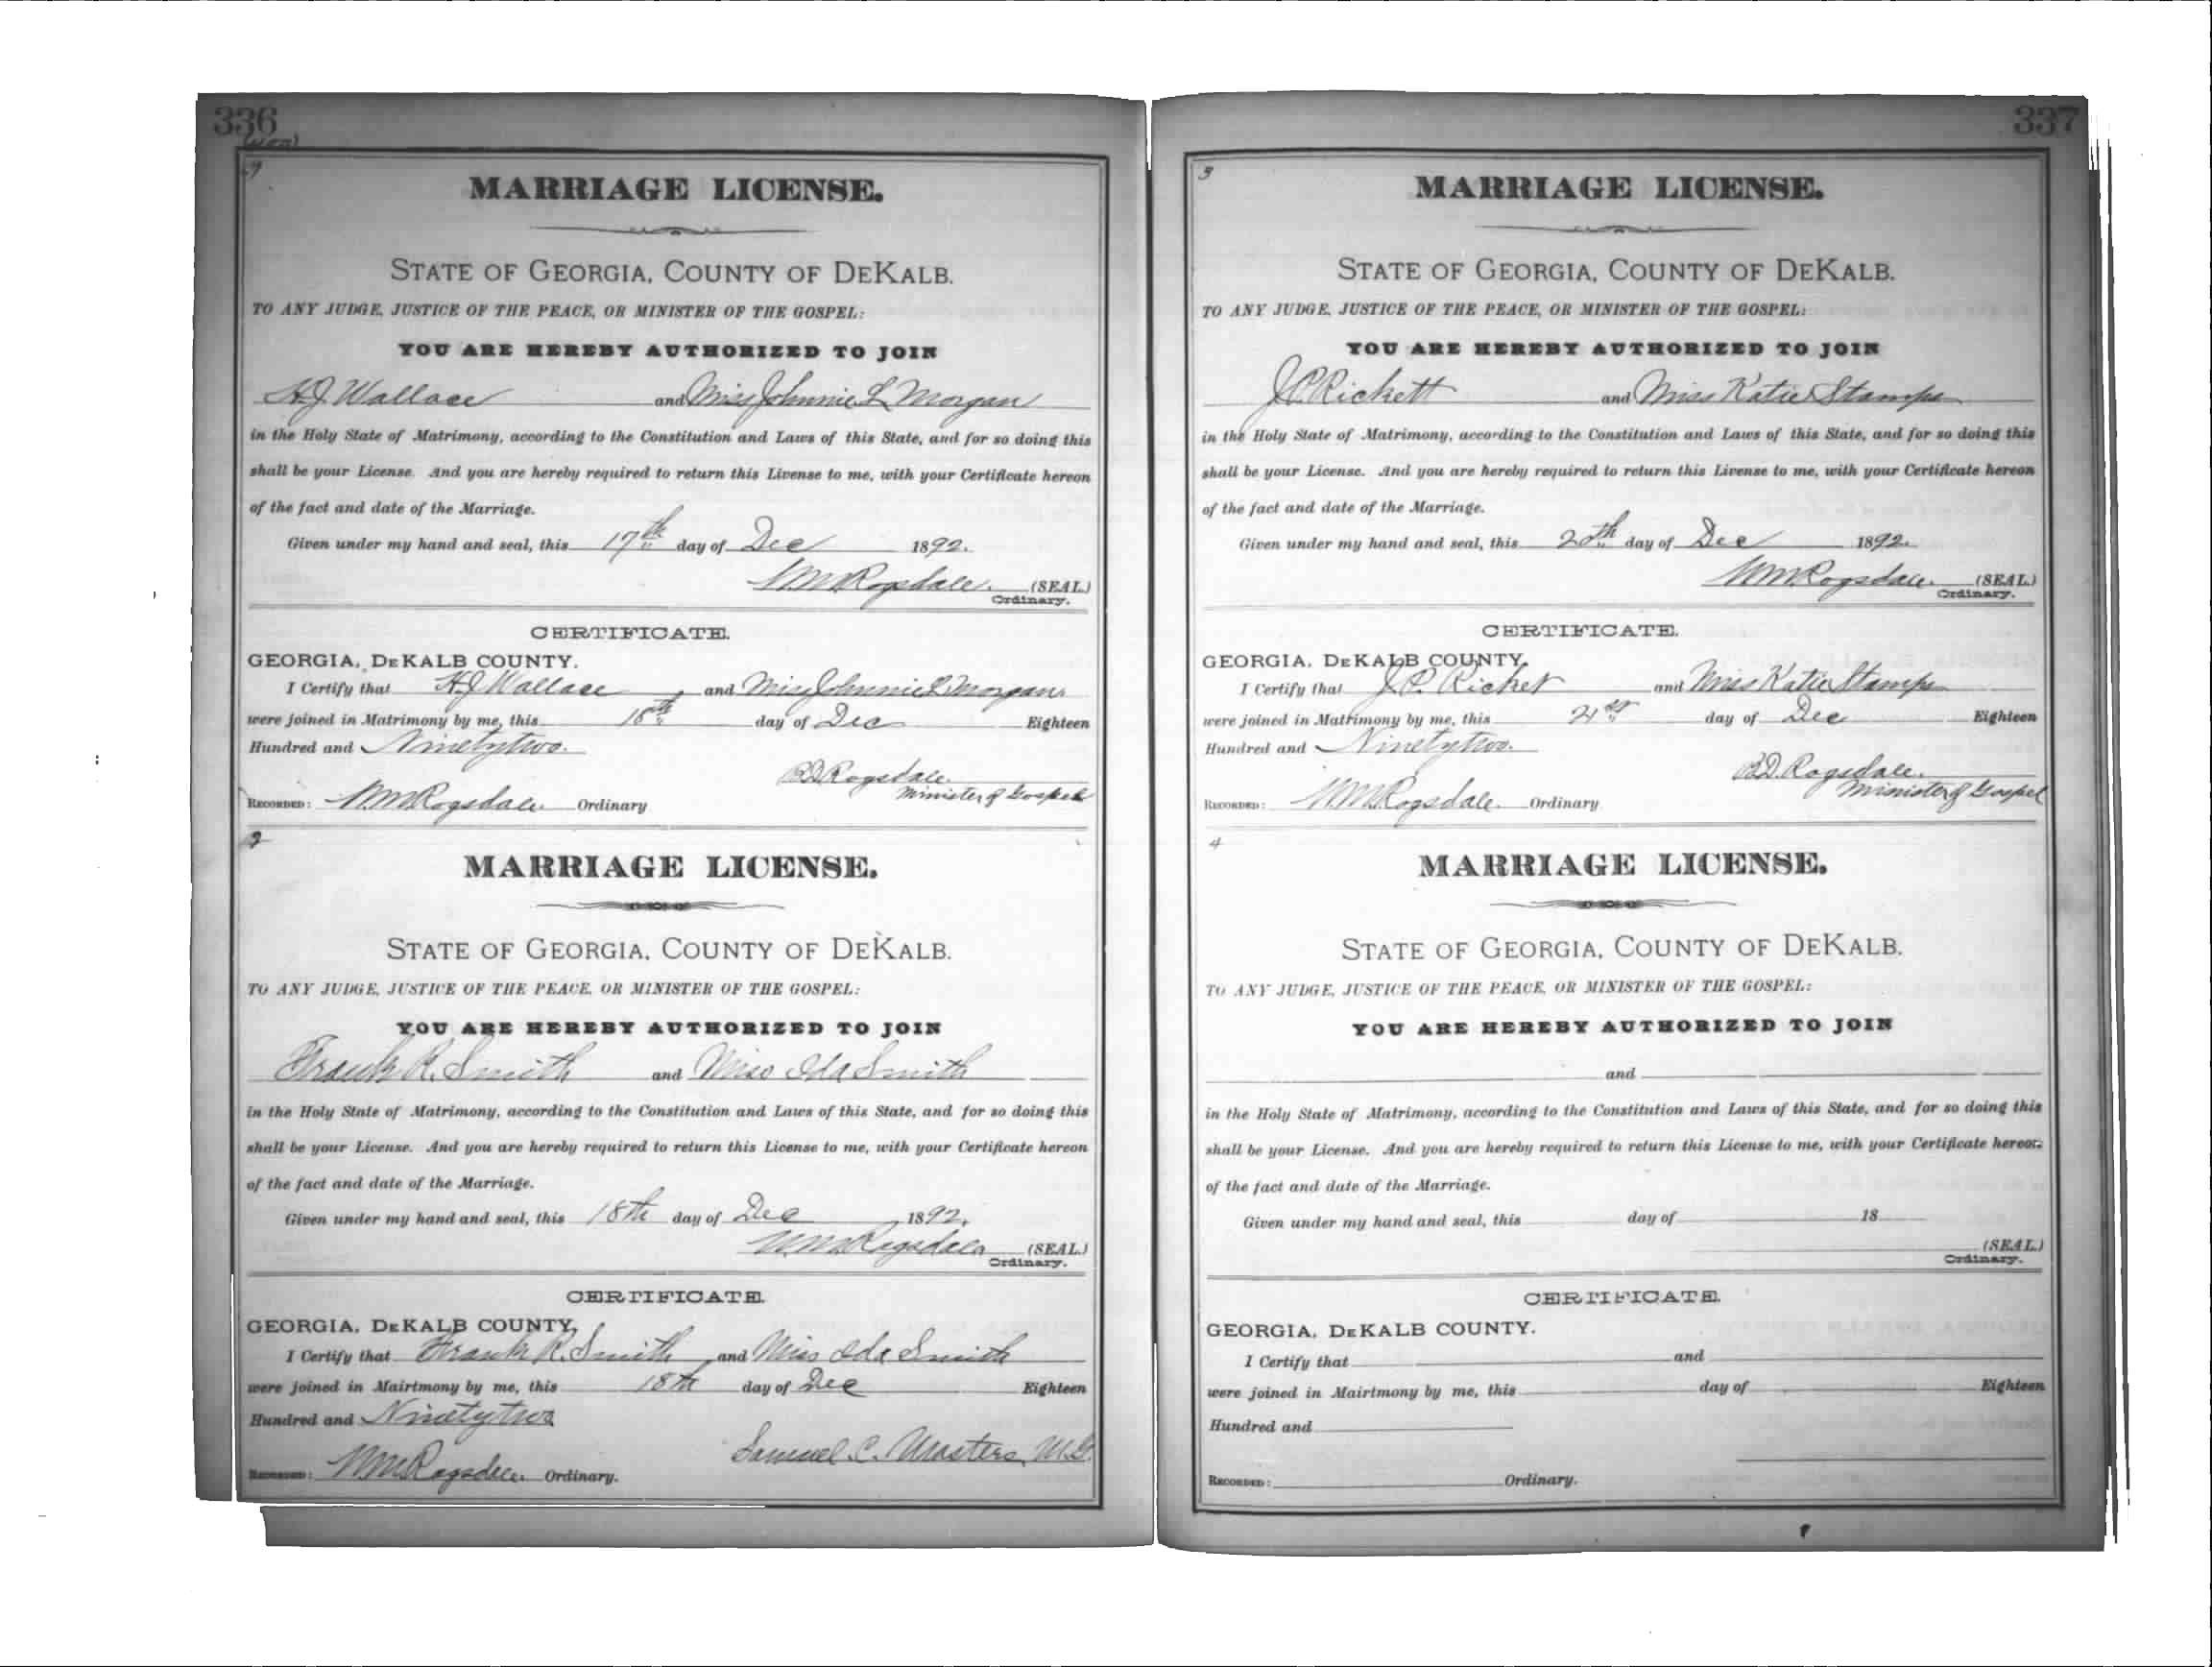 336
MARRIAGE LICENSE.
STATE OF GEORGIA, COUNTY OF DEKALB.
TO ANY JUDGE, JUSTICE OF THE PEACE, OR MINISTER OF THE GOSPEL:
YOU ARE HEREBY AUTHORIZED TO JOIN
H.J. Wallace and Miss Johnnie L Morgan
in the Holy State of Matrimony, according to the Constitution and Laws of this State, and for so doing this
shall be your License. And you are hereby required to return this License to me, with your Certificate hereon
of the fact and date of the Marriage.
Given under my hand and seal, this 17th day of Dec 1892.
W.M. Ragsdale. (SEAL)
Ordinary.
CERTIFICATE.
GEORGIA, DEKALB COUNTY.
I Certify that H.J. Wallace and Miss Johnnie L Morgan
were joined in Matrimony by me, this 18th day of Dec Eighteen
Hundred and Ninetytwo.
R.D. Ragsdale.
Minister of Gospel
RECORDED: W.M. Ragsdale. Ordinary
2
MARRIAGE LICENSE.
STATE OF GEORGIA, COUNTY OF DEKALB.
TO ANY JUDGE, JUSTICE OF THE PEACE, OR MINISTER OF THE GOSPEL:
YOU ARE HEREBY AUTHORIZED TO JOIN
Frank R. Smith and Miss Ida Smith
in the Holy State of Matrimony, according to the Constitution and Laws of this State, and for so doing this
shall be your License. And you are hereby required to return this License to me, with your Certificate hereon
of the fact and date of the Marriage.
Given under my hand and seal, this 18th day of Dec 1892.
W.M. Ragsdale (SEAL)
Ordinary.
CERTIFICATE.
GEORGIA, DEKALB COUNTY,
I Certify that Frank R. Smith and Miss Ida Smith
were joined in Mairtmony by me, this 18th day of Dec Eighteen
Hundred and Ninetytwo
Samuel C. Masters, M.G.
RECORDED: W.M. Ragsdale. Ordinary.
337
3
MARRIAGE LICENSE.
STATE OF GEORGIA, COUNTY OF DEKALB.
TO ANY JUDGE, JUSTICE OF THE PEACE, OR MINISTER OF THE GOSPEL:
YOU ARE HEREBY AUTHORIZED TO JOIN
J.P. Rickett and Miss Katie Stamps
in the Holy State of Matrimony, according to the Constitution and Laws of this State, and for so doing this
shall be your License. And you are hereby required to return this License to me, with your Certificate hereon
of the fact and date of the Marriage.
Given under my hand and seal, this 20th day of Dec 1892.
W.M. Ragsdale. (SEAL)
Ordinary.
CERTIFICATE.
GEORGIA, DEKALB COUNTY.
I Certify that J.P. Ricket and Miss Katie Stamps
were joined in Matrimony by me, this 21st day of Dec Eighteen
Hundred and Ninetytwo.
R.D. Ragsdale.
Minister of Gospel
RECORDED: W.M. Ragsdale. Ordinary
4
MARRIAGE LICENSE.
STATE OF GEORGIA, COUNTY OF DEKALB.
TO ANY JUDGE, JUSTICE OF THE PEACE, OR MINISTER OF THE GOSPEL:
YOU ARE HEREBY AUTHORIZED TO JOIN
and
in the Holy State of Matrimony, according to the Constitution and Laws of this State, and for so doing this
shall be your License. And you are hereby required to return this License to me, with your Certificate hereon
of the fact and date of the Marriage.
Given under my hand and seal, this day of 18
(SEAL)
Ordinary.
CERTIFICATE.
GEORGIA, DEKALB COUNTY.
I Certify that and
were joined in Mairtmony by me, this day of Eighteen
Hundred and
RECORDED: Ordinary.